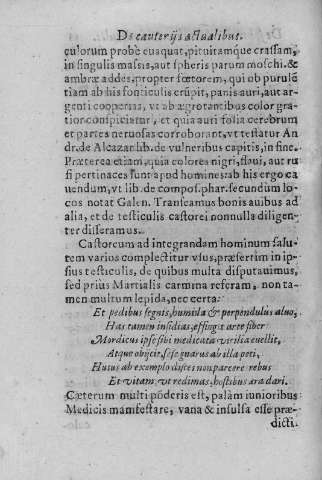 De cauterijs actualibus.
culorum probè euaquat, pituitamque crassam,
in singulis massis, aut spheris parum moschi. &
ambræ addes, propter fœtorem, qui ob purulē
tiam ab his fonticulis erūpit, panis auri, aut ar-
genti cooperias, vt ab ægrotantibus color gra-
tior conspiciatur, et quia auri folia cerebrum
et partes neruosas corroborant, vt testatur An
dr. de Alcazar lib. de vulneribus capitis, in fine.
Præterea etiam, quia colores nigri, flaui, aut ru
fi pertinaces sunt apud homines: ab his ergo ca
uendum, vt lib. de compos. phar. secundum lo-
cos notat Galen. Transeamus bonis auibus ad
alia, et de testiculis castorei nonnulla diligen-
ter disseramus.
Castoreum ad integrandam hominum salu-
tem varios complectitur vsus, præsertim in ip-
sius testiculis, de quibus multa disputauimus,
sed prius Martialis carmina referam, non ta-
men multum lepida, nec certa:
Et pedibus segnis, humila & perpendulus aluo,
Has tamen insidias, effingit arte fiber
Mordicus ipse sibi medicata virilia euellit,
Atque obijcit, sese gnarus ab illa peti,
Huius ab exemplo disces non parcere rebus
Et vitam, vt redimas, hostibus ara dari.
Cæterum multi pōderis est, palàm iunioribus
Medicis manifestare, vana & insulsa esse præ-
dicti.